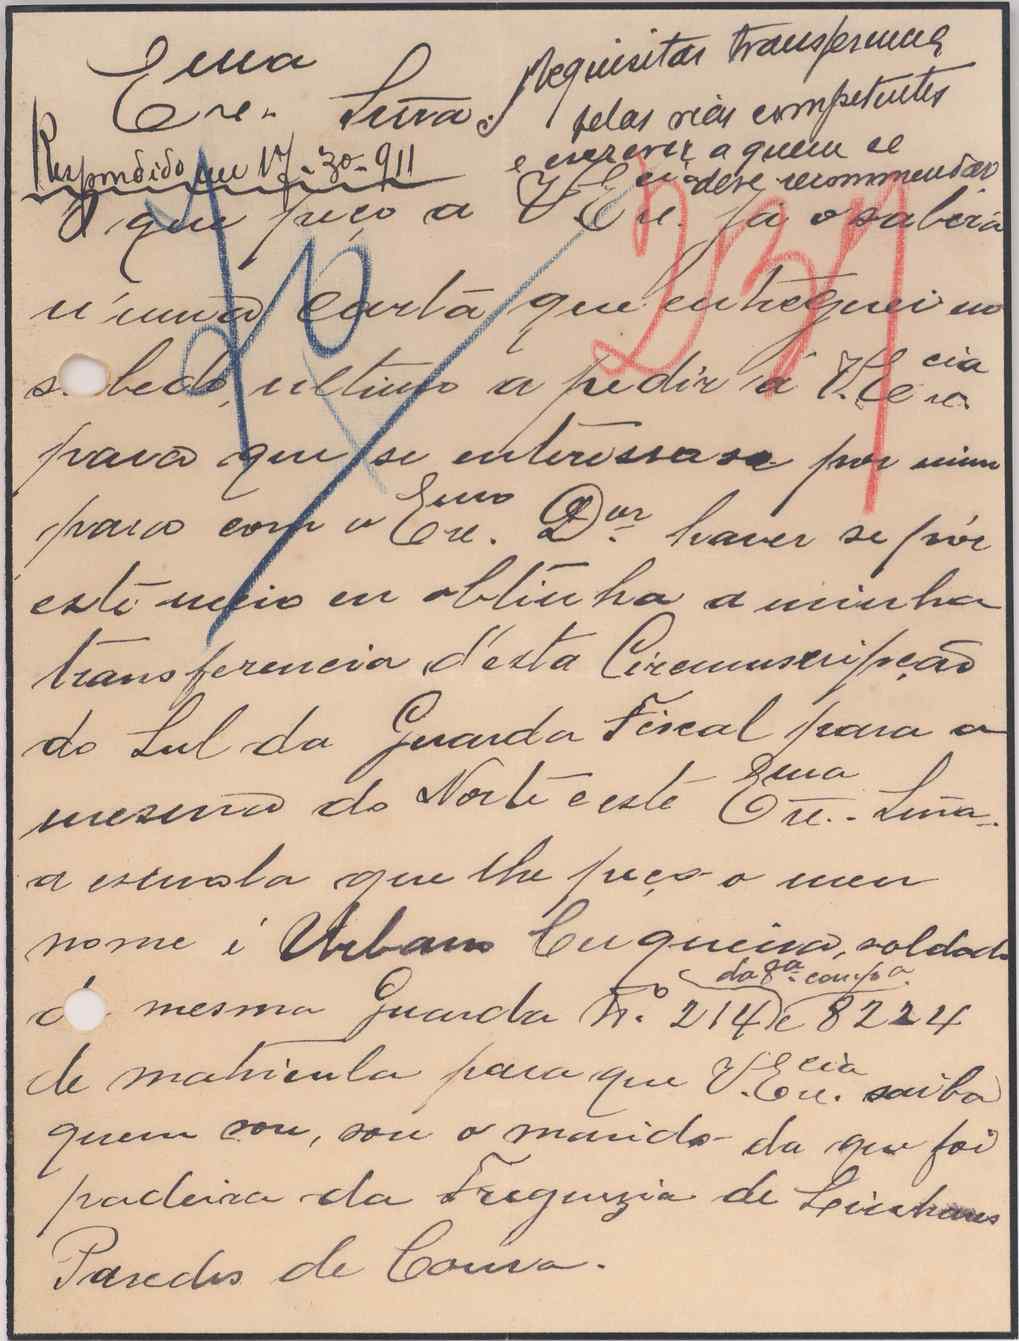 Exma
Exc. Snra.
Requisitar transferencia
pelas vias competentes
e escrever a quem se
deve recommendar
Respondido em 17-30-911
237
O que peço a V. Excia. já o saberá
n'uma carta que entreguei no
sabado ultimo a pedir á V. Excia
para que se enteressase por mim
para com o Exmo Exc. Dor. haver se pór
este meio eu obtinha a minha
transferencia d'esta Circumscripção
do Sul da Guarda Fiscal para a
mesma do Norte e este Exma Exc. Snra.
a esmola que lhe peço o meu
nome é Urbano Cerqueira, soldado
da mesma Guarda N.º 214 da 8ª compª. e 8224
de matricula para que V. Excia. saiba
quem sou, sou o marido da que foi
padeira da Freguezia de Linhares
Paredes de Coura.